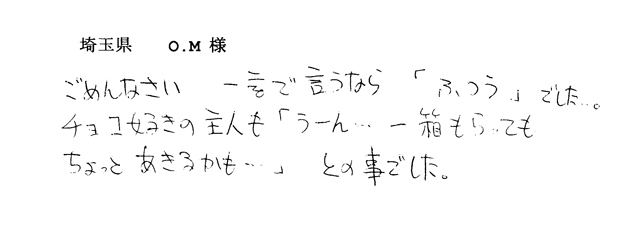 埼玉県 O.M 様
ごめんなさい 一言で言うなら 「ふつう」でした…。
チョコ好きの主人も「うーん… 一箱もらっても
ちょっと あきるかも…」 との事でした。